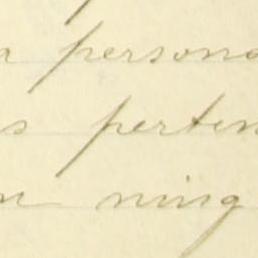 a persona
s perten
n ning